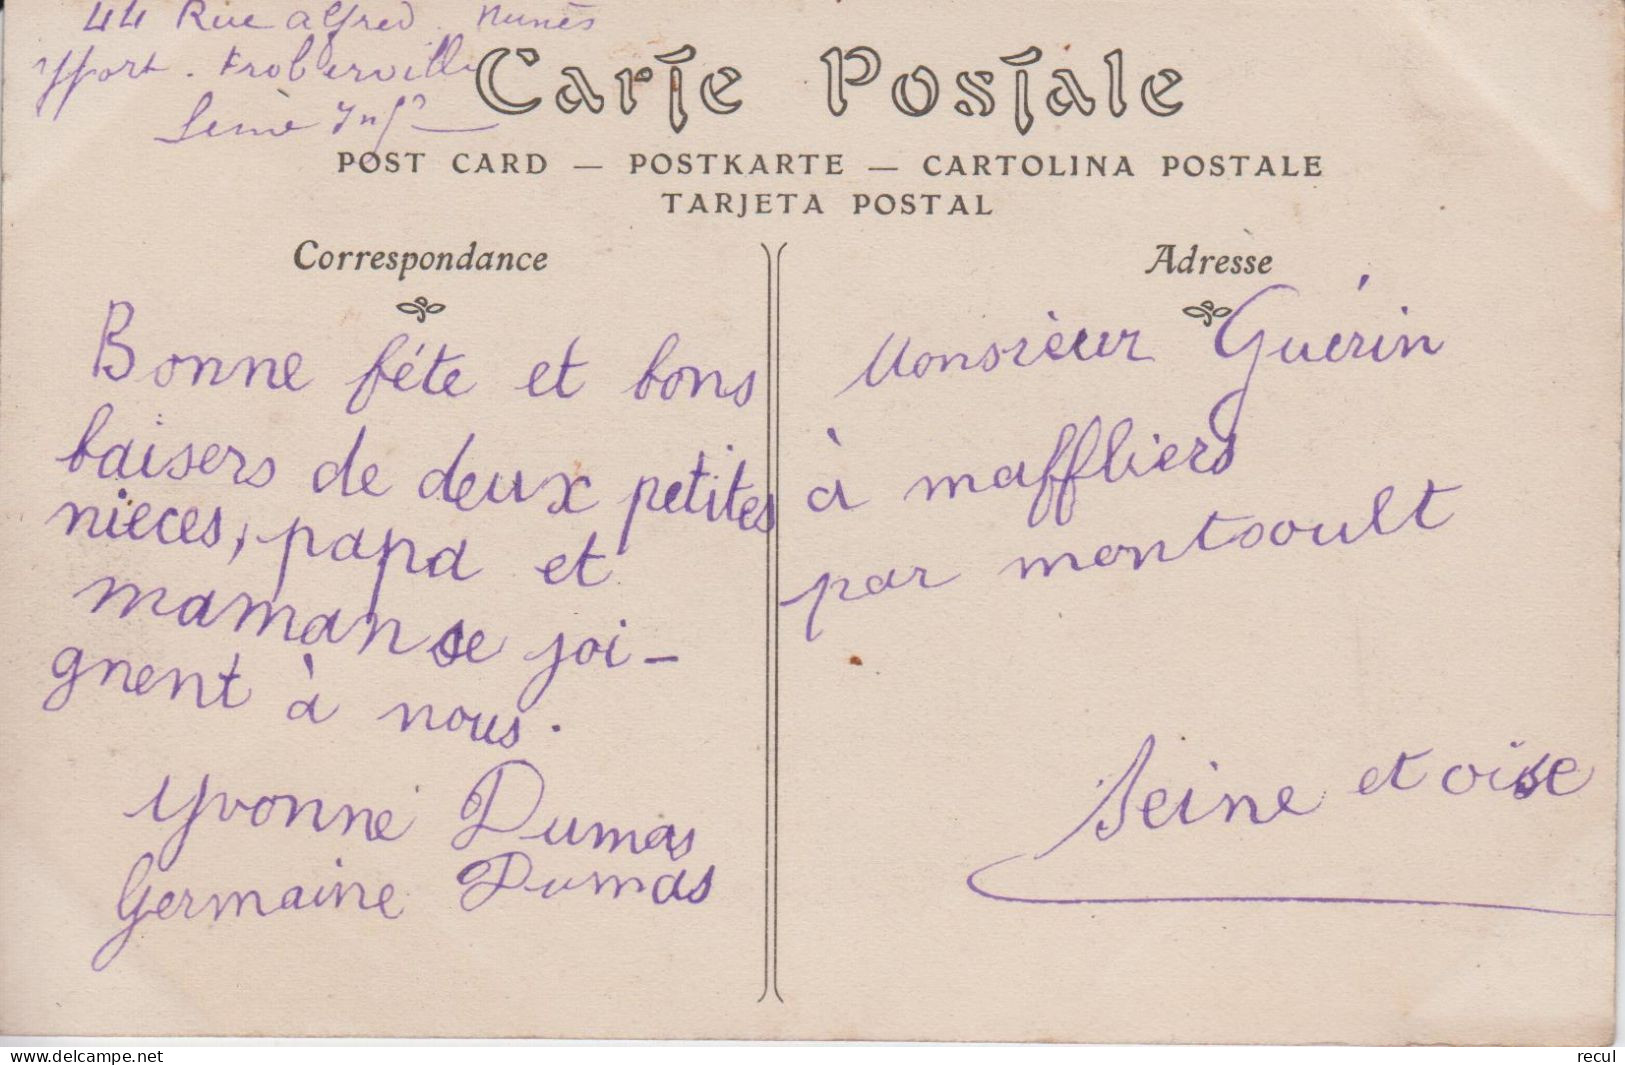 44 Rue alfred Nunès
Yport. Froberville
Seine Infre
Carte Postale
POST CARD — POSTKARTE — CARTOLINA POSTALE
TARJETA POSTAL
Correspondance
Bonne féte et bons
baisers de deux petites
nieces, papa et
maman se joi-
gnent à nous.
Yvonne Dumas
Germaine Dumas
Adresse
Monsieur Guérin
à maffliers
par montsoult
Seine et oise
www.delcampe.net
recul